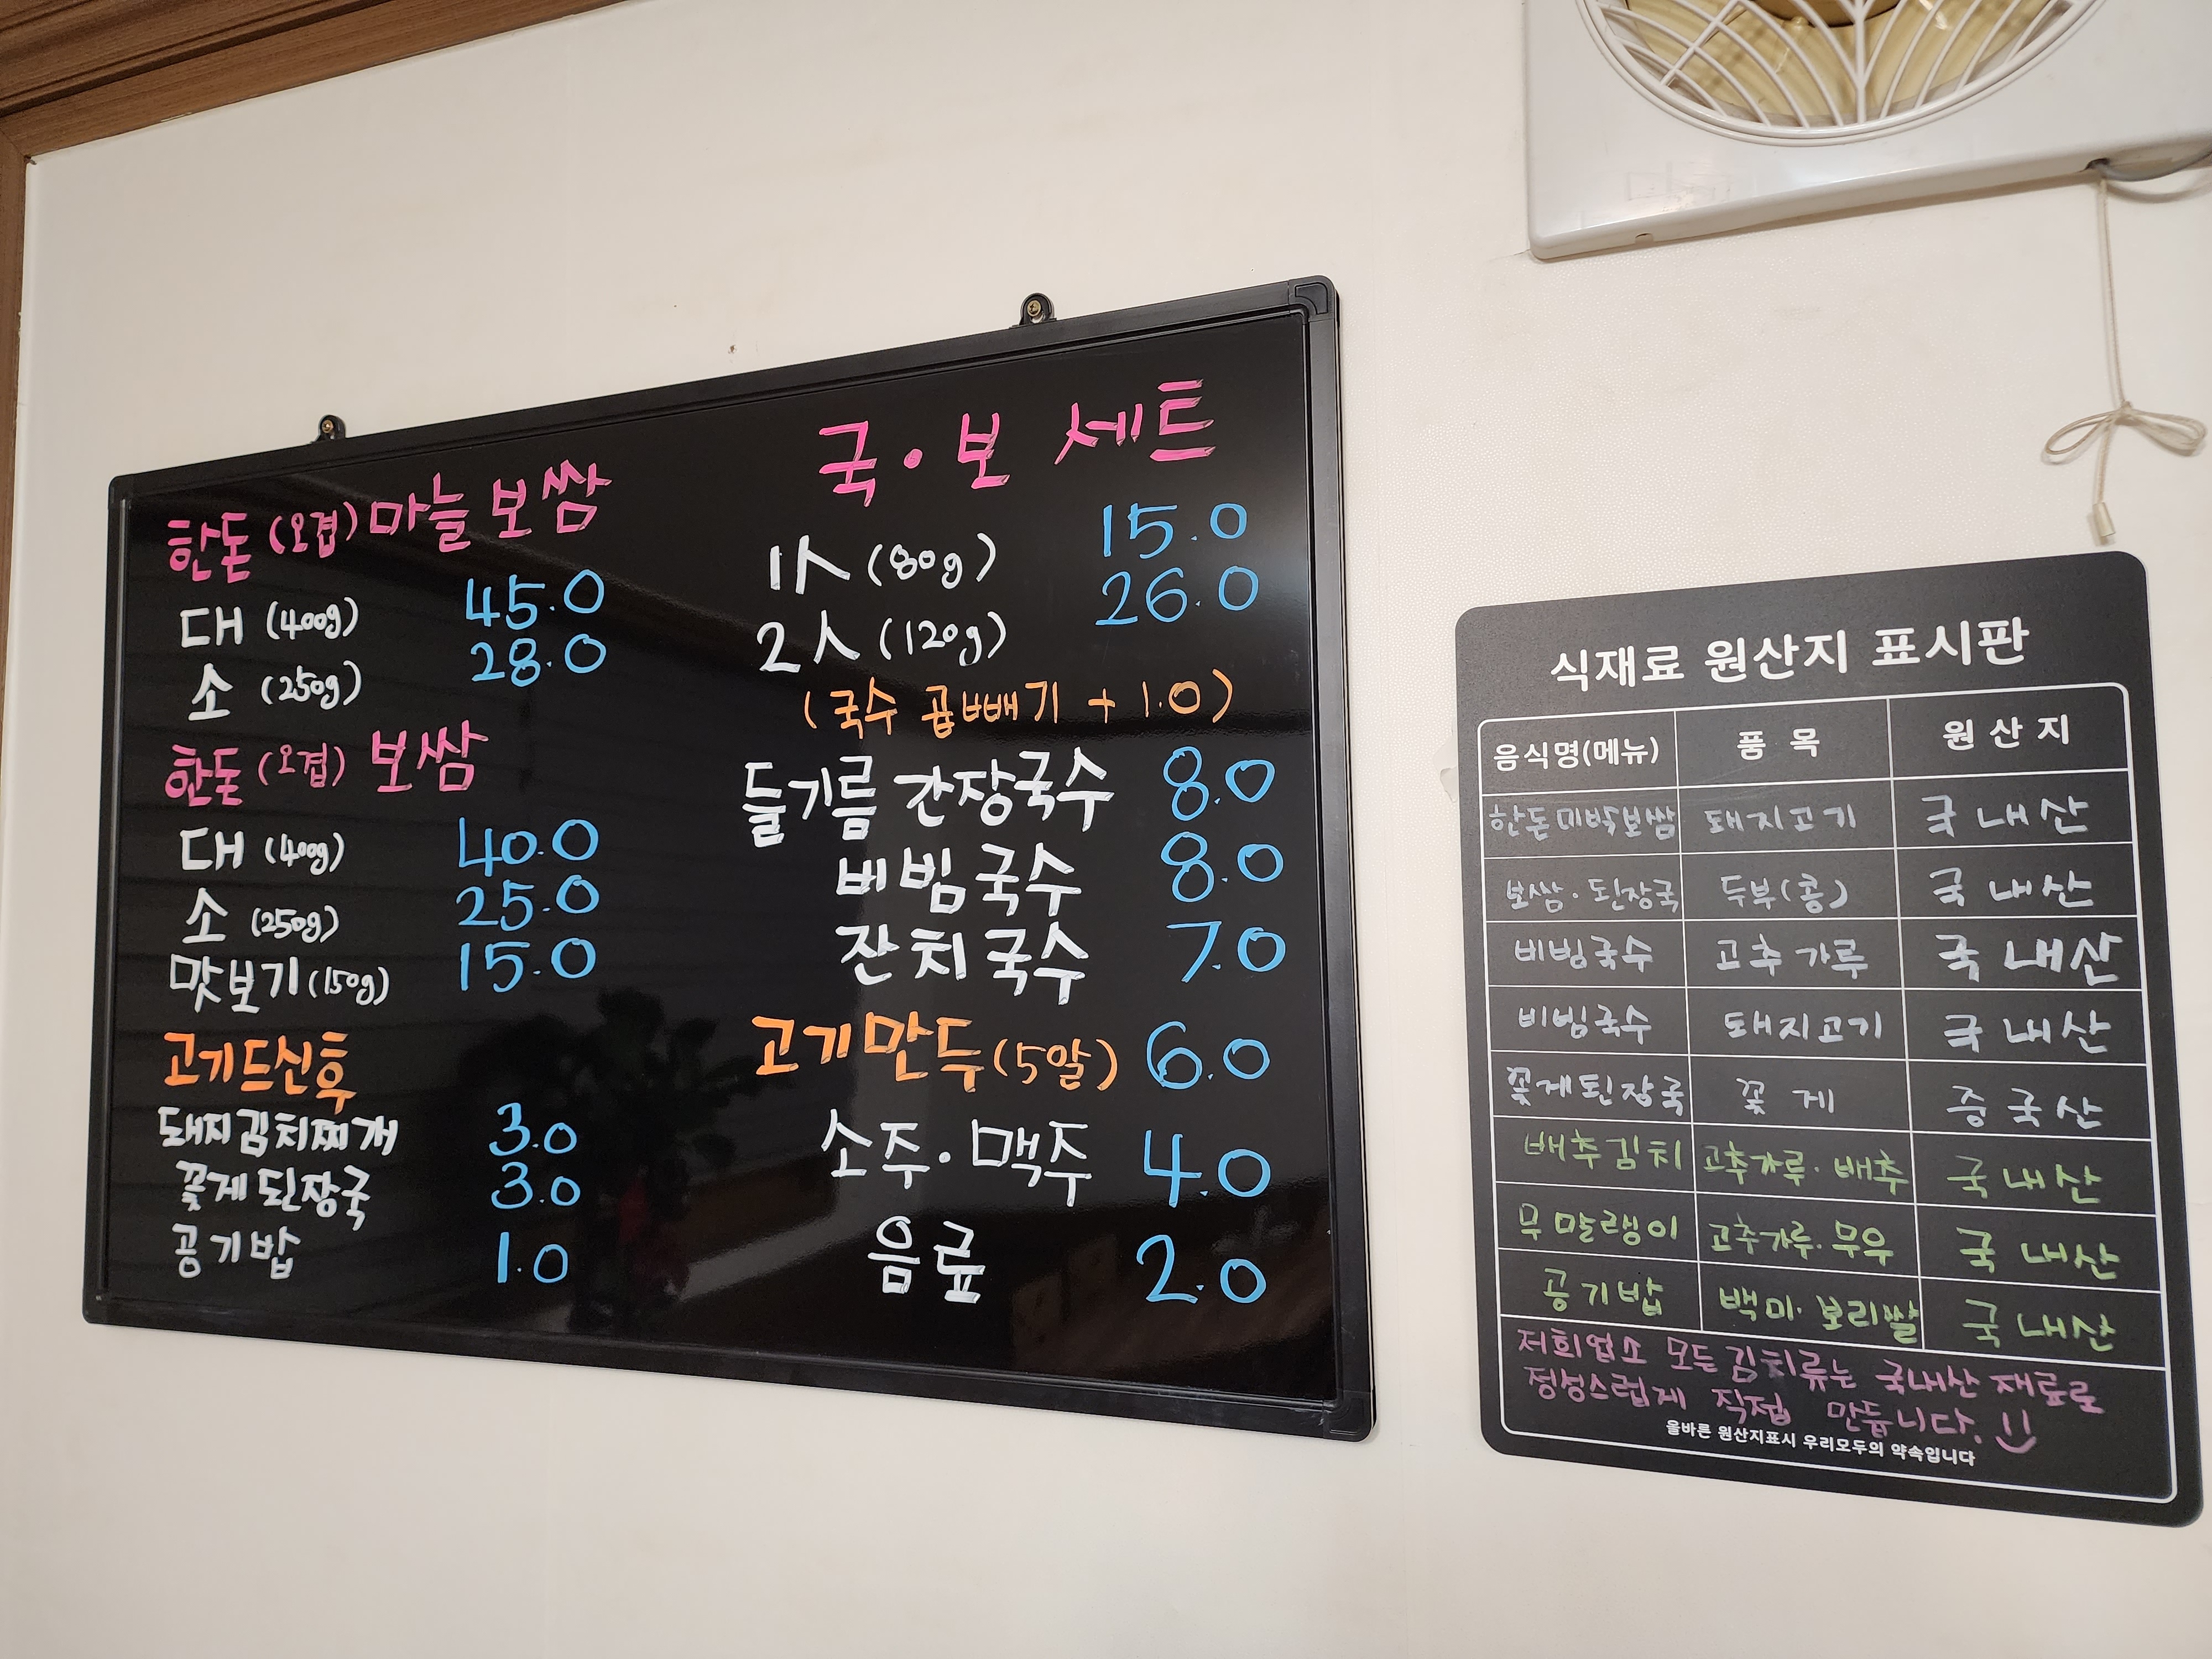 한돈(오겹)마늘보쌈
대 (400g) 45.0
소 (250g) 28.0
한돈(오겹) 보쌈
대 (400g) 40.0
소 (250g) 25.0
맛보기(150g) 15.0
고기드신후
돼지김치찌개 3.0
꽃게된장국 3.0
공기밥 1.0
국·보 세트
1人(80g) 15.0
2人(120g) 26.0
(국수 곱빼기 + 1.0)
들기름 간장국수 8.0
비빔국수 8.0
잔치국수 7.0
고기만두(5알) 6.0
소주·맥주 4.0
음료 2.0
식재료 원산지 표시판
음식명(메뉴) 품 목 원 산 지
한돈미박보쌈 돼지고기 국내산
보쌈·된장국 두부(콩) 국내산
비빔국수 고추가루 국내산
비빔국수 돼지고기 국내산
꽃게된장국 꽃게 중국산
배추김치 고추가루·배추 국내산
무말랭이 고추가루·무우 국내산
공기밥 백미·보리쌀 국내산
저희업소 모든김치류는 국내산 재료로
정성스럽게 직접 만듭니다.
올바른 원산지표시 우리모두의 약속입니다